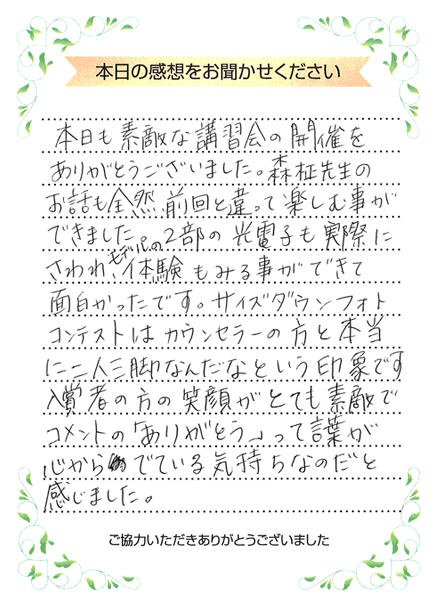 本日の感想をお聞かせください
本日も素敵な講習会の開催を
ありがとうございました。森柾先生の
お話も全然前回と違って楽しむ事が
できました。2部の光電子も実際に
さわれ、モデルの体験もみる事ができて
面白かったです。サイズダウンフォト
コンテストはカウンセラーの方と本当
に二人三脚なんだなという印象です
入賞者の方の笑顔がとても素敵で
コメントの「ありがとう」って言葉が
心からでている気持ちなのだと
感じました。
ご協力いただきありがとうございました